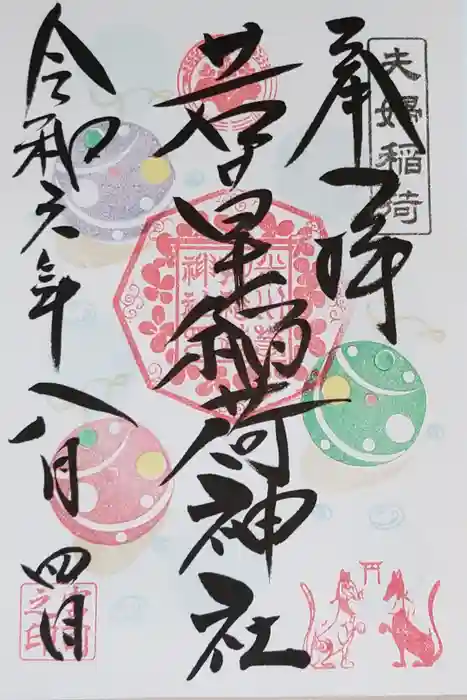 夫婦稲荷
奉拝
稲荷神社
令和六年八月四日
宮司之印